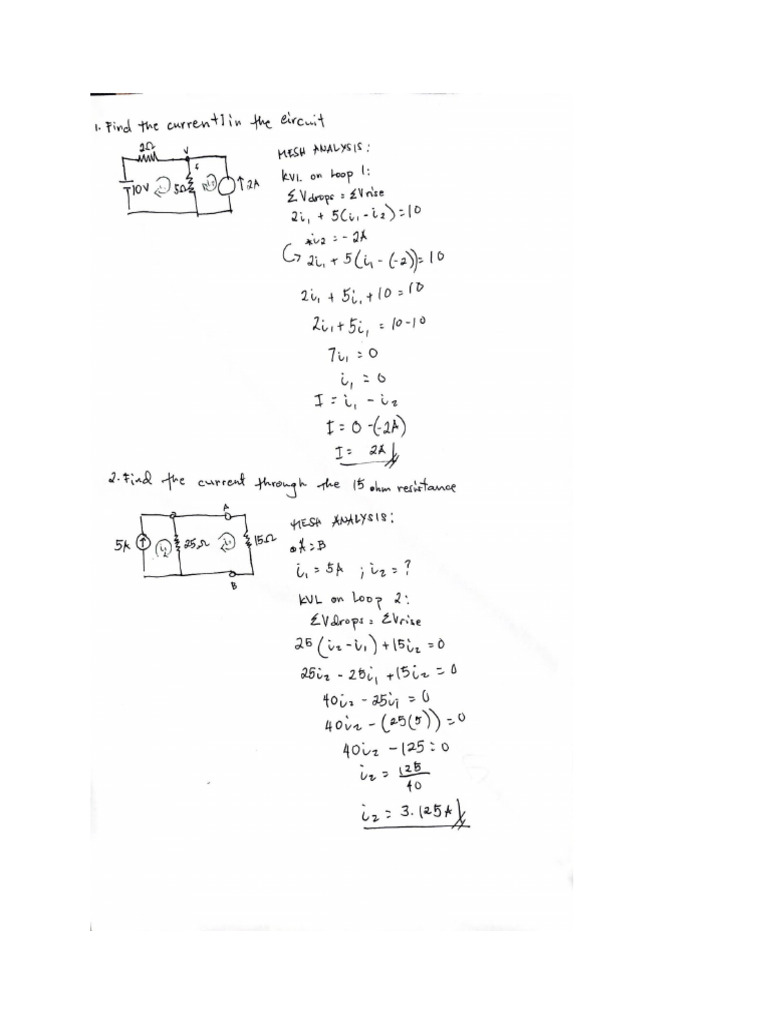 1. Find the current I in the circuit
2Ω
V
10V
5Ω
i₁
i₂
2A
MESH ANALYSIS:
KVL on Loop 1:
ΣVdrops = ΣVrise
2i₁ + 5(i₁ - i₂) = 10
*i₂ = - 2A
2i₁ + 5(i₁ - (-2)) = 10
2i₁ + 5i₁ + 10 = 10
2i₁ + 5i₁ = 10 - 10
7i₁ = 0
i₁ = 0
I = i₁ - i₂
I = 0 - (-2A)
I = 2A
2. Find the current through the 15 ohm resistance
A
5A
25Ω
15Ω
B
MESH ANALYSIS:
A = B
i₁ = 5A ; i₂ = ?
KVL on Loop 2:
ΣVdrops = ΣVrise
25(i₂ - i₁) + 15i₂ = 0
25i₂ - 25i₁ + 15i₂ = 0
40i₂ - 25i₁ = 0
40i₂ - (25(5)) = 0
40i₂ - 125 = 0
i₂ = 125
40
i₂ = 3.125A